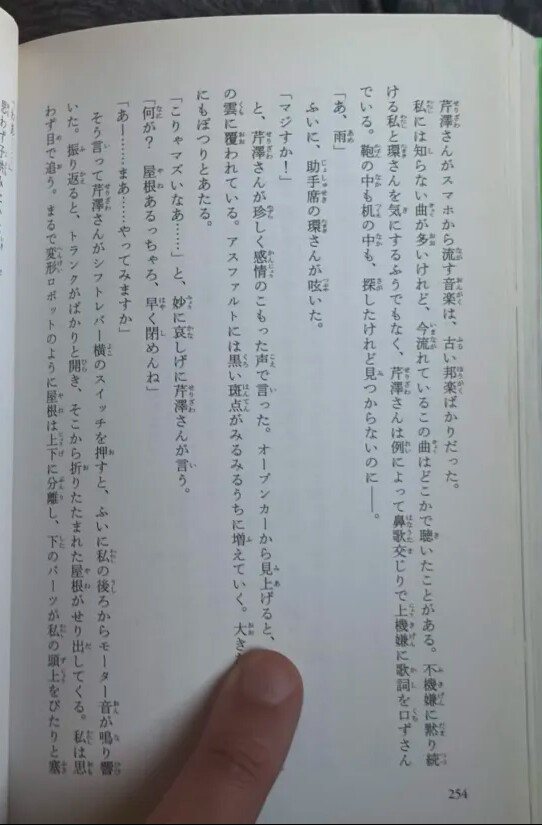 芹澤さんがスマホから流す音楽は、古い邦楽ばかりだった。
私には知らない曲が多いけれど、今流れているこの曲はどこかで聴いたことがある。不機嫌に黙り続
ける私と環さんを気にするふうでもなく、芹澤さんは例によって鼻歌交じりで上機嫌に歌詞を口ずさん
でいる。鞄の中も机の中も、探したけれど見つからないのに――。
「あ、雨」
ふいに、助手席の環さんが呟いた。
「マジすか！」
と、芹澤さんが珍しく感情のこもった声で言った。オープンカーから見上げると、
の雲に覆われている。アスファルトには黒い斑点がみるみるうちに増えていく。大き
にもぽつりとあたる。
「こりゃマズいなあ……」と、妙に哀しげに芹澤さんが言う。
「何が？　屋根あるっちゃろ、早く閉めんね」
「あー……まあ……やってみますか」
そう言って芹澤さんがシフトレバー横のスイッチを押すと、ふいに私の後ろからモーター音が鳴り響
いた。振り返ると、トランクがぱかりと開き、そこから折りたたまれた屋根がせり出してくる。私は思
わず目で追う。まるで変形ロボットのように屋根は上下に分離し、下のパーツが私の頭上をぴたりと塞
254